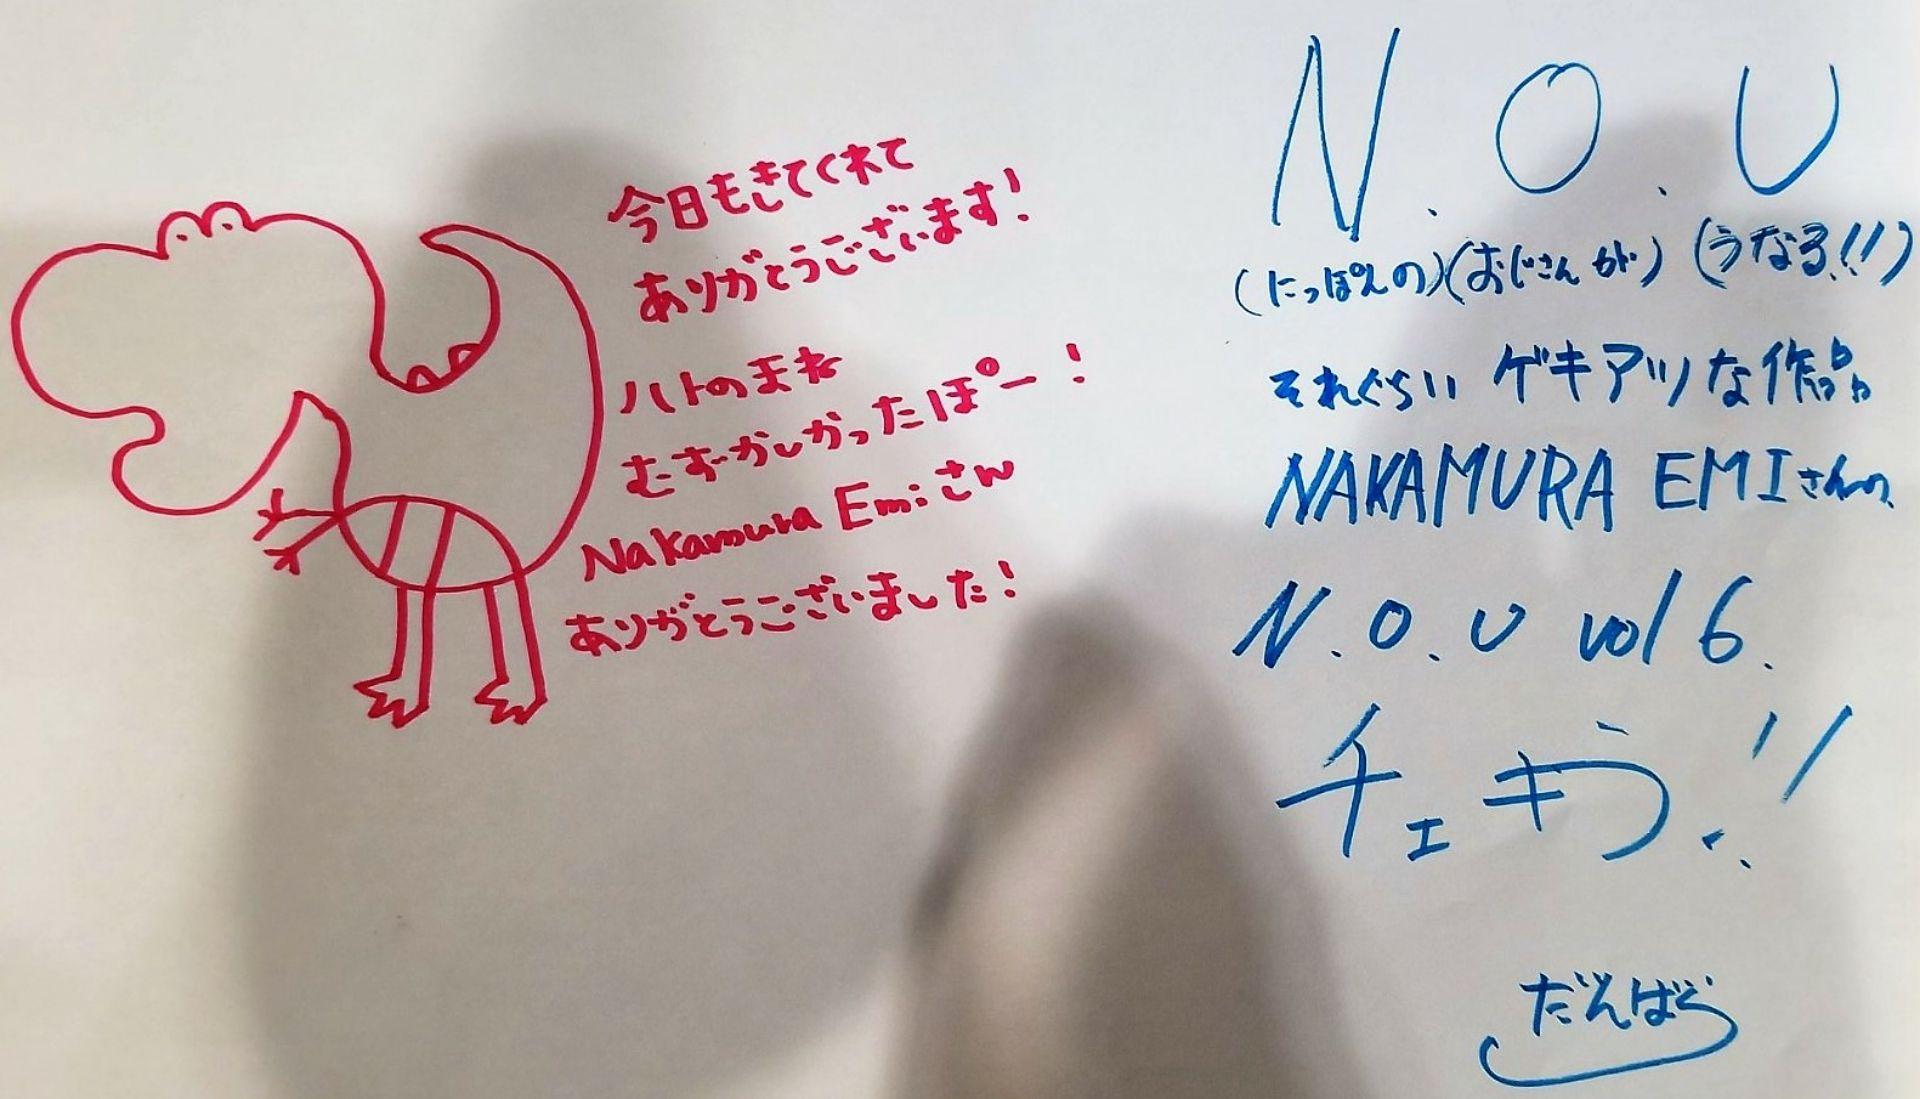 今日もきてくれて
ありがとうございます!
ハトのまね
むずかしかったぽー!
Nakamura Emiさん
ありがとうございました!
N.O.U
(にっぽんの)(おじさんが)(うなる!!)
それぐらい ゲキアツな作品
NAKAMURA EMIさんの
N.O.U vol 6.
チェキラ!!
だんばら